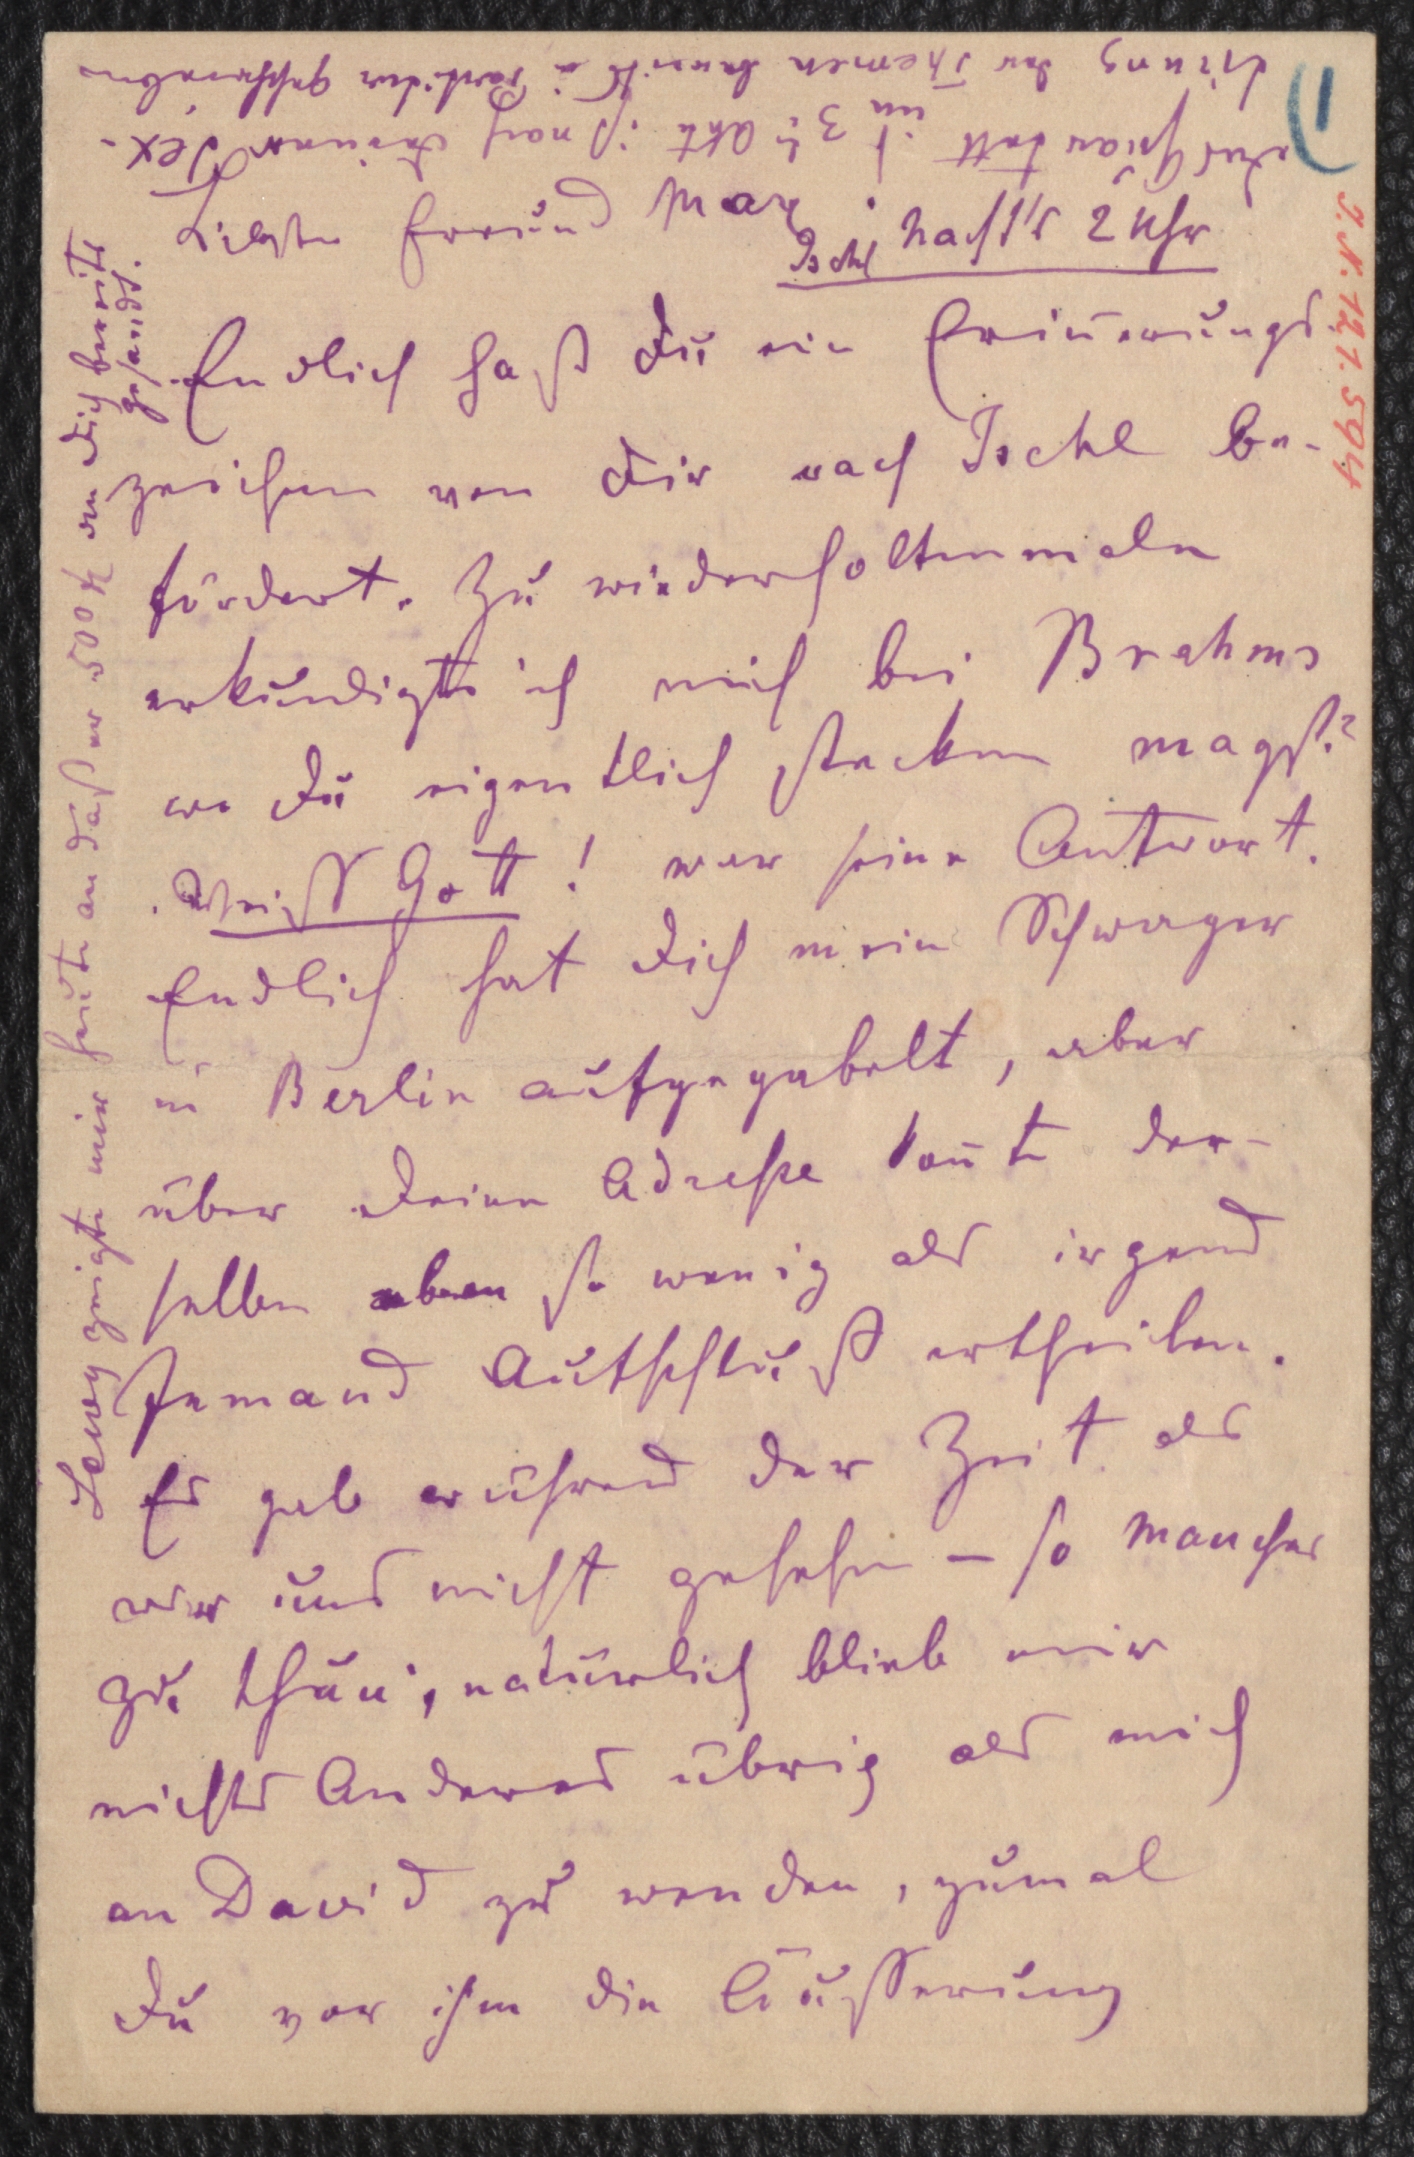 Liebster Freund Max!
Ischl Nachts 2 Uhr
Endlich hast Du ein Erinnerungs-
zeichen von Dir nach Ischl be-
fördert. Zu wiederholtenmalen
erkundigte ich mich bei Brahms
wo Du eigentlich stecken magst?
Weiß Gott! war seine Antwort.
Endlich hat Dich mein Schwager
in Berlin aufgegabelt, aber
über Deine Adresse konnte der-
selbe eben so wenig als irgend
Jemand Aufschluß ertheilen.
Es gab während der Zeit als
wir uns nicht gesehen – so manches
zu thun, natürlich blieb mir
nichts Anderes übrig als mich
an David zu wenden, zumal
Du vor ihm die Äusserung
Lewy zeigte mir heute an daß er 500 fl an Dich bereits
gesandt.
Das Quartett im 3t Akt ist nach Deiner Tex-
tirung der Themen bereits in Partitur geschrieben
1)
I.N. 121.594